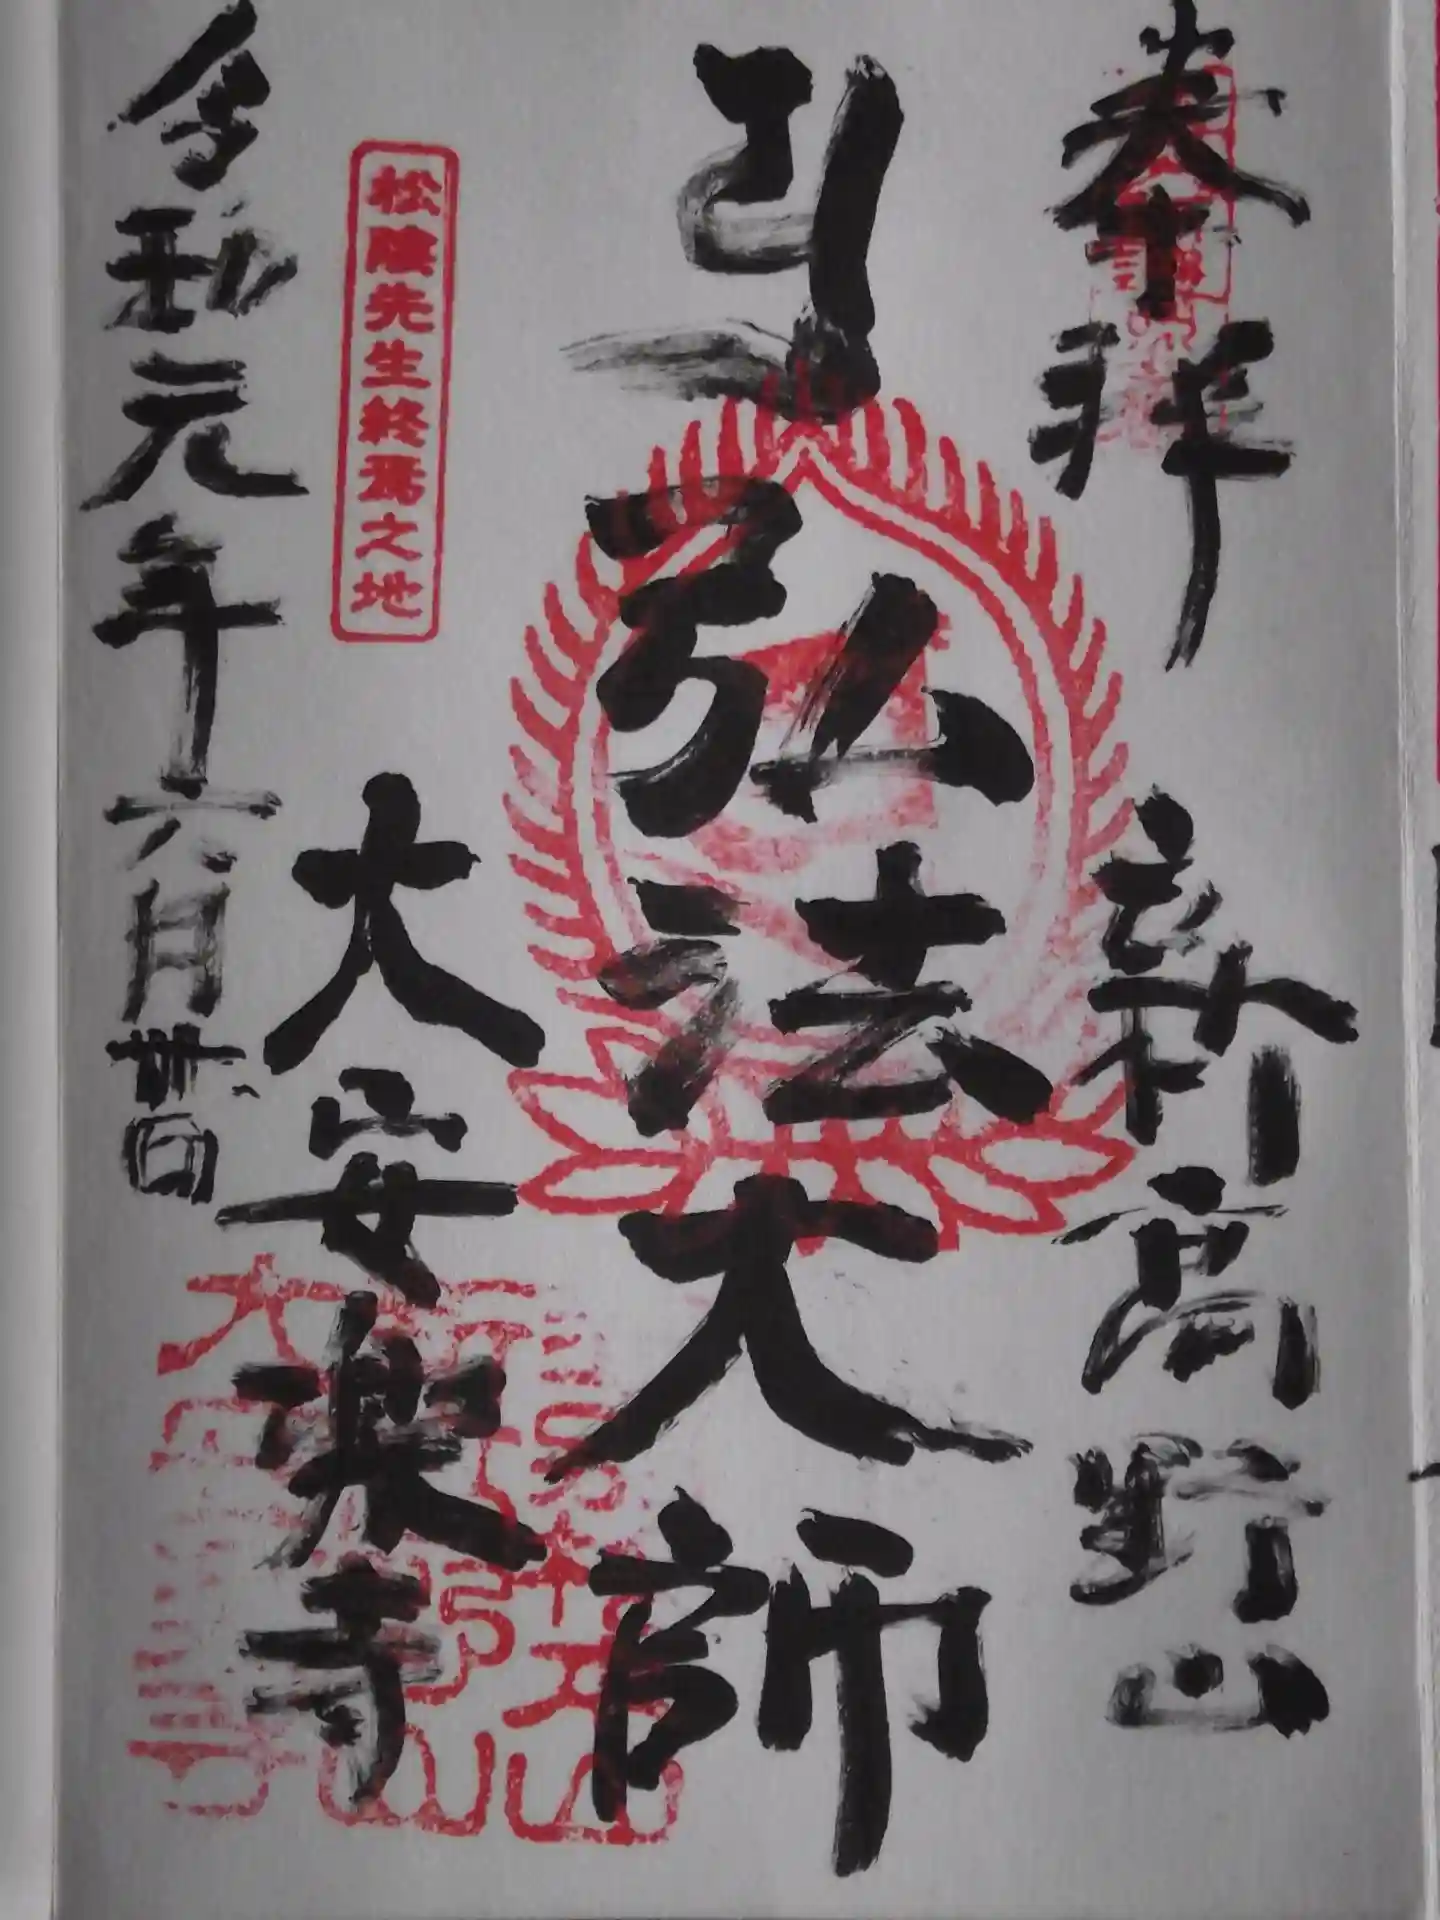 奉拝
新高野山
弘法大師
松陰先生終焉之地
大安楽寺
令和元年六月卅日